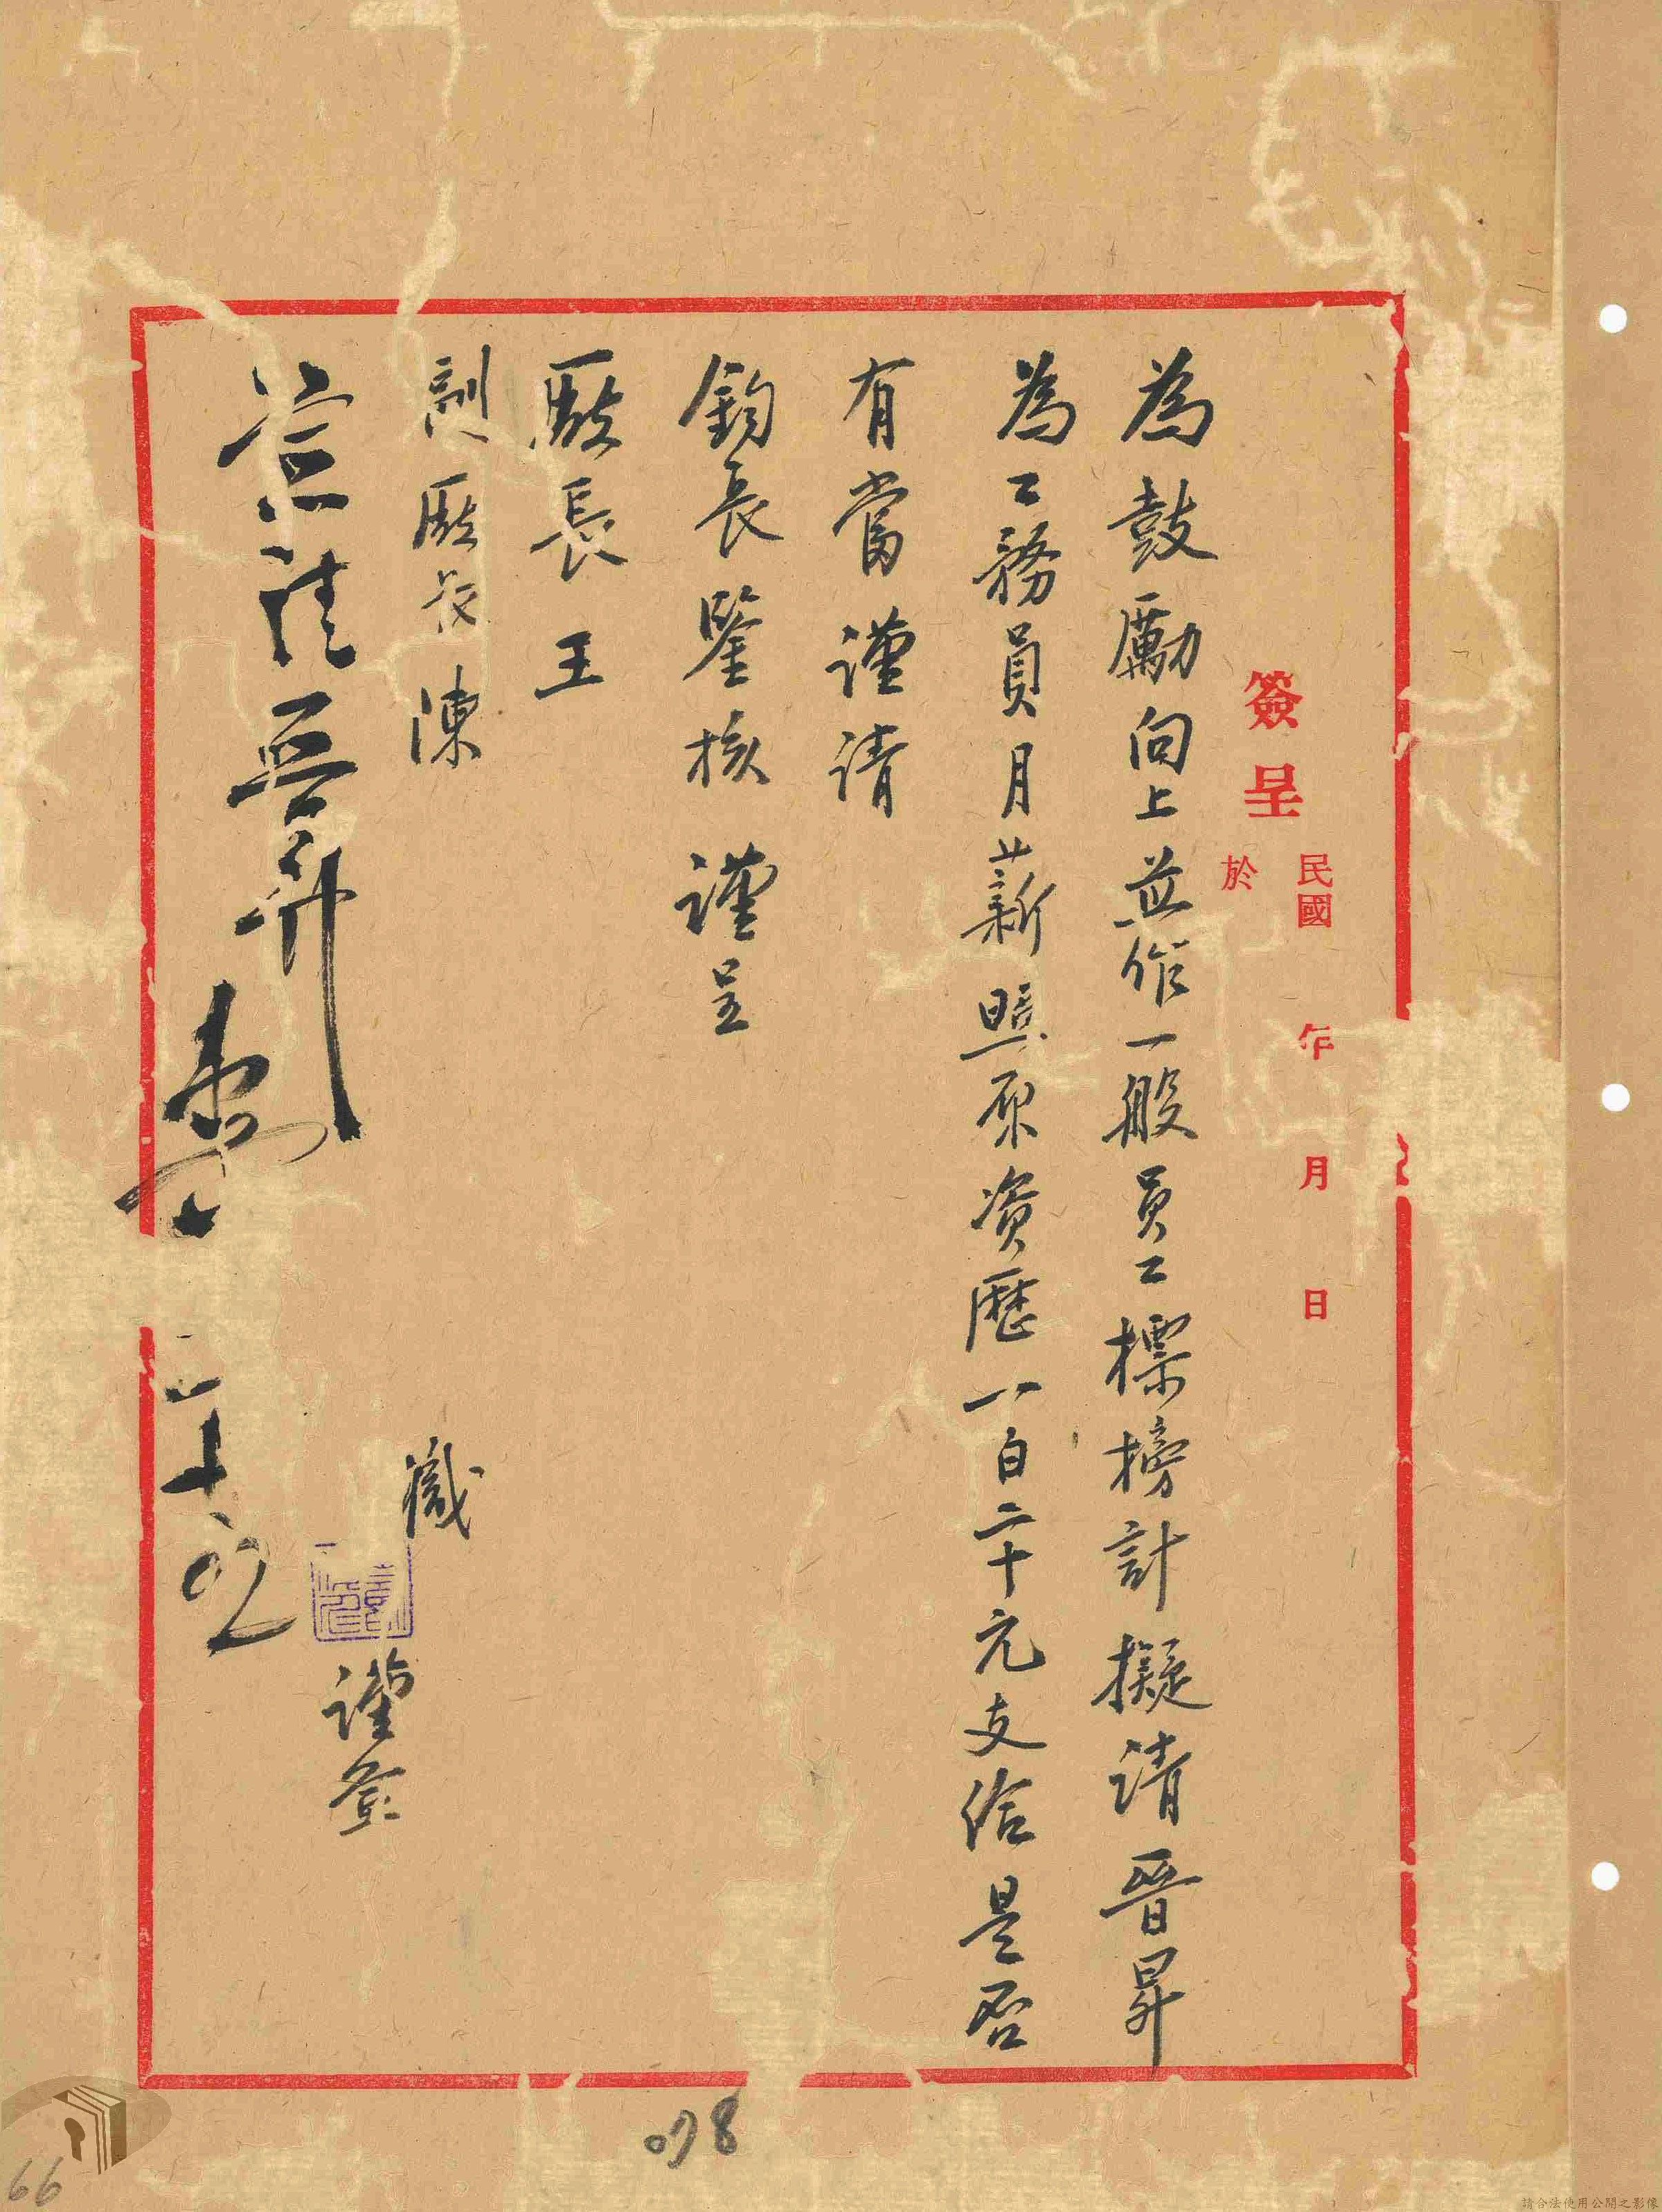 簽呈
民國 年 月 日
於
為鼓勵向上並作一般員工標榜計擬請晉昇
為工務員月薪照原資歷一百二十元支給是否
有當謹請
鈞長鑒核謹呈
廠長王
副廠長陳
職
謹簽
078
66
請合法使用公開之影像